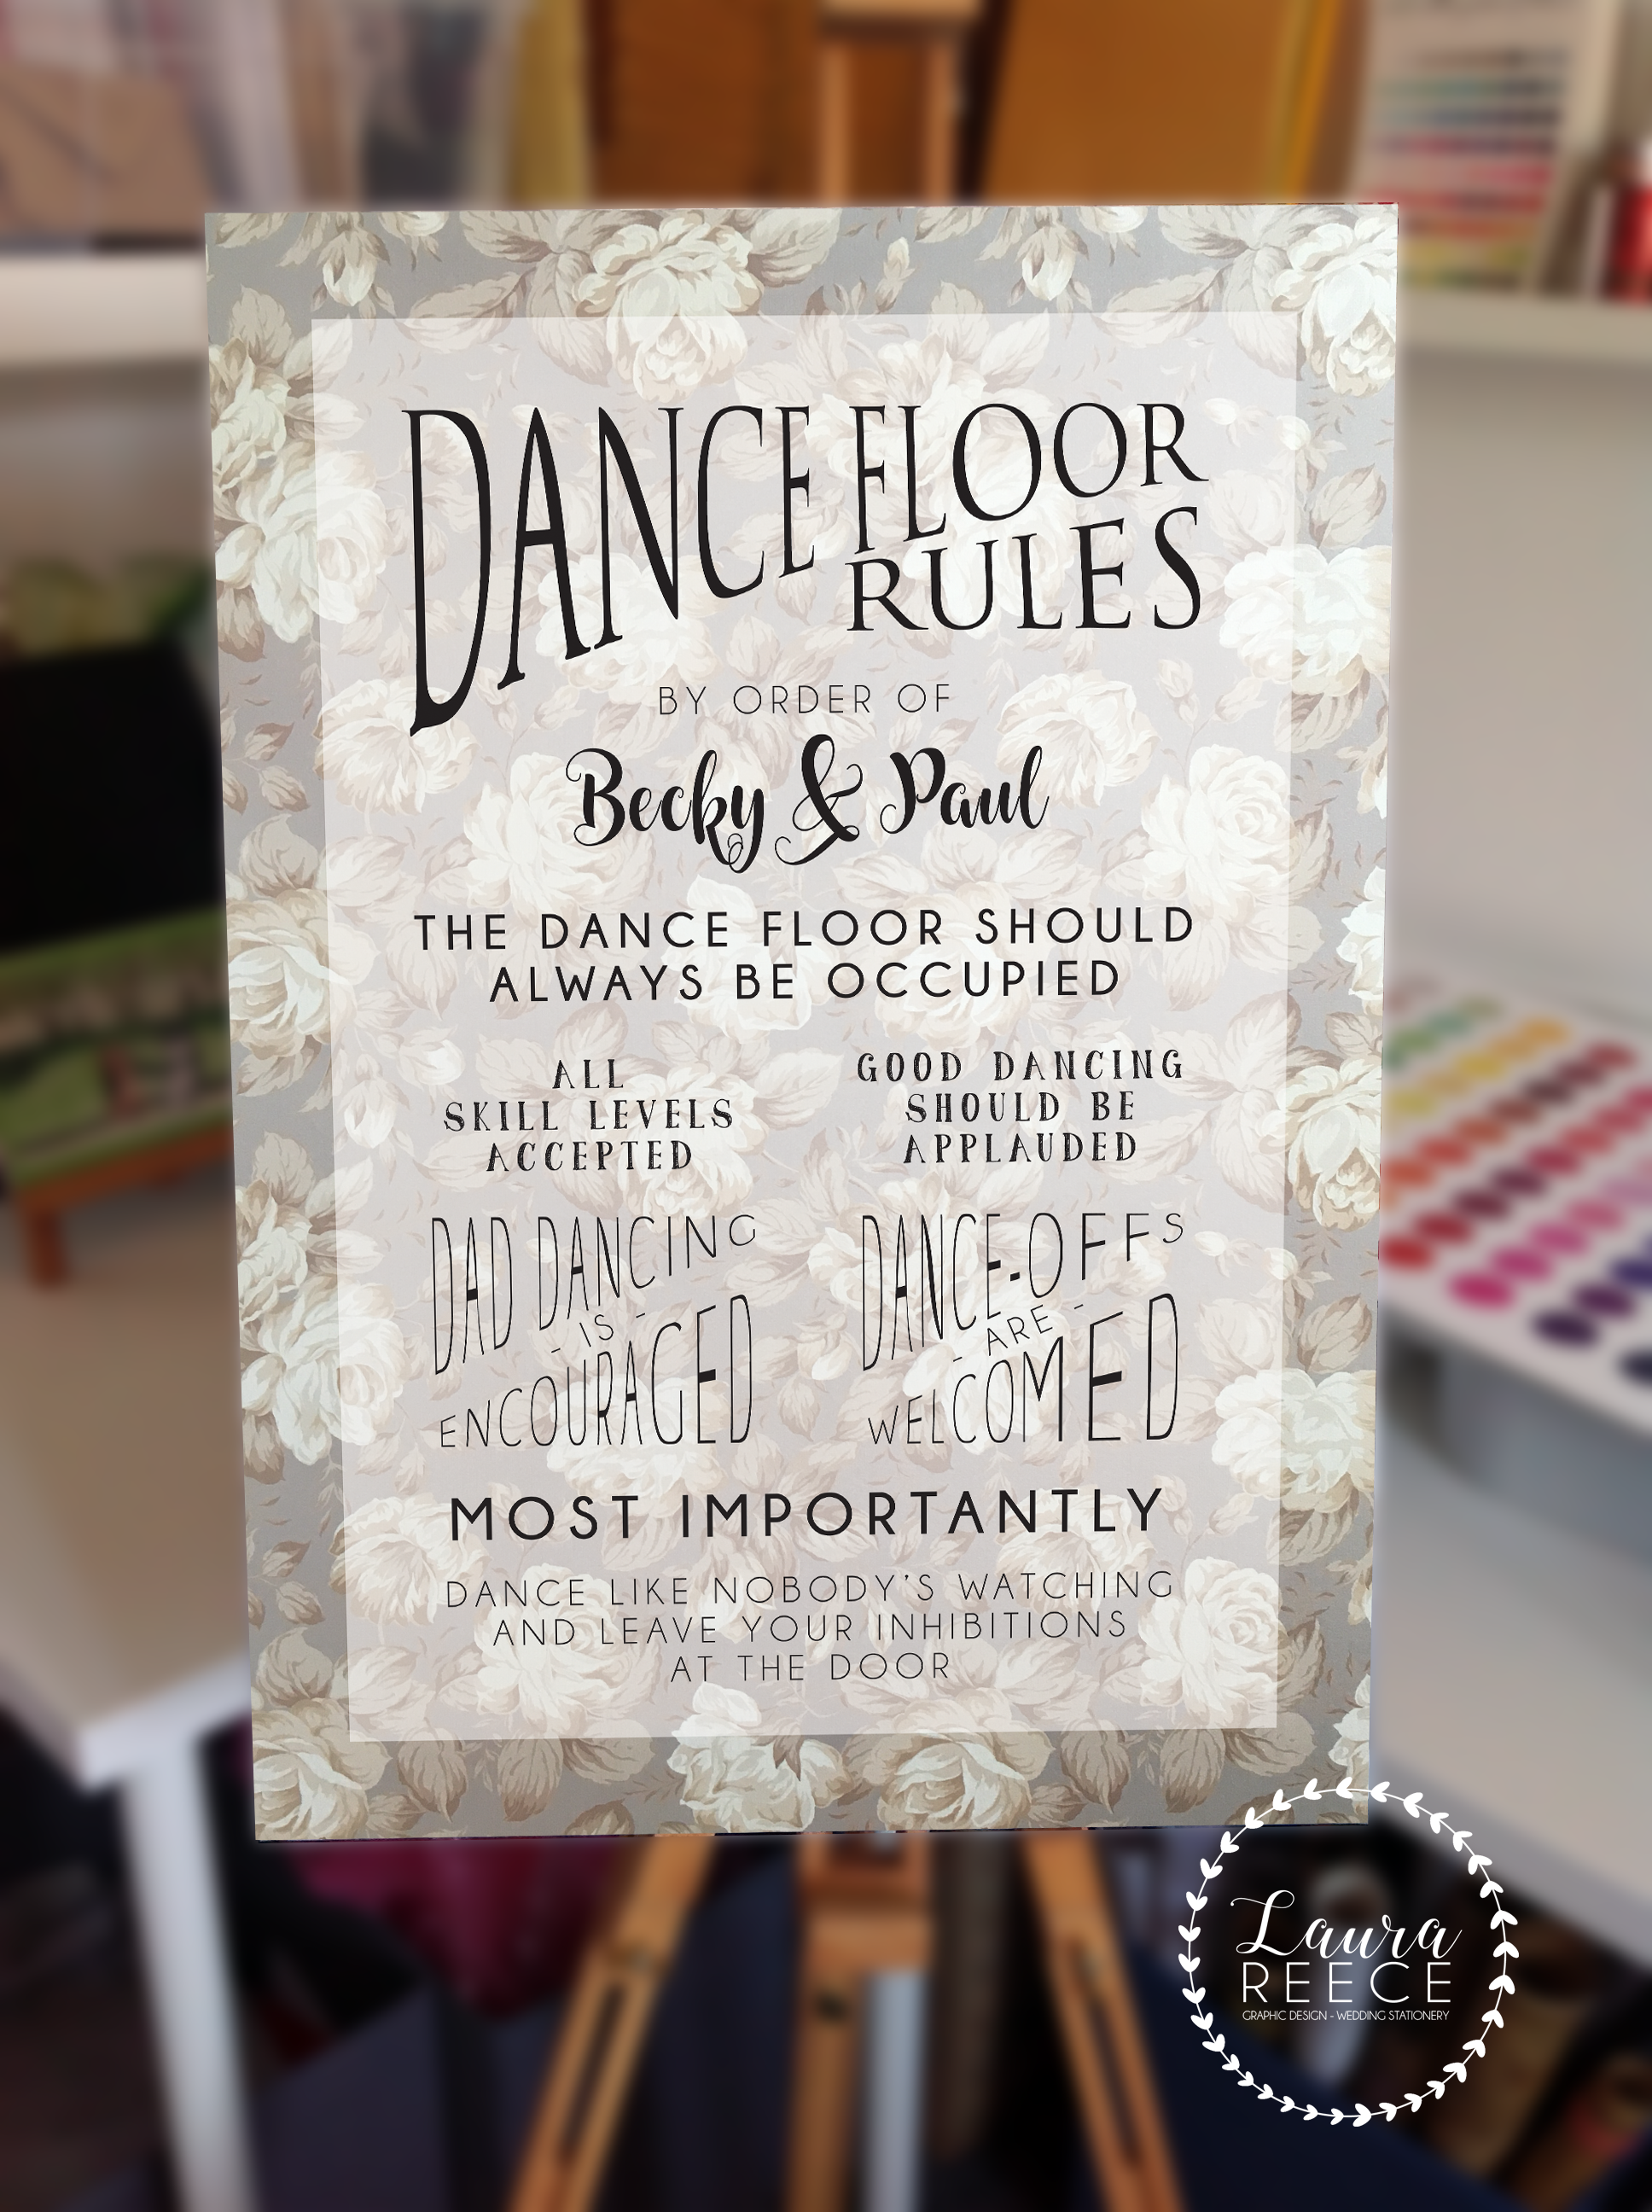 DANCE FLOOR
RULES
BY ORDER OF
Becky & Paul
THE DANCE FLOOR SHOULD
ALWAYS BE OCCUPIED
ALL
SKILL LEVELS
ACCEPTED
GOOD DANCING
SHOULD BE
APPLAUDED
DAD DANCING
- IS -
ENCOURAGED
DANCE-OFFS
- ARE -
WELCOMED
MOST IMPORTANTLY
DANCE LIKE NOBODY'S WATCHING
AND LEAVE YOUR INHIBITIONS
AT THE DOOR
Laura
REECE
GRAPHIC DESIGN - WEDDING STATIONERY